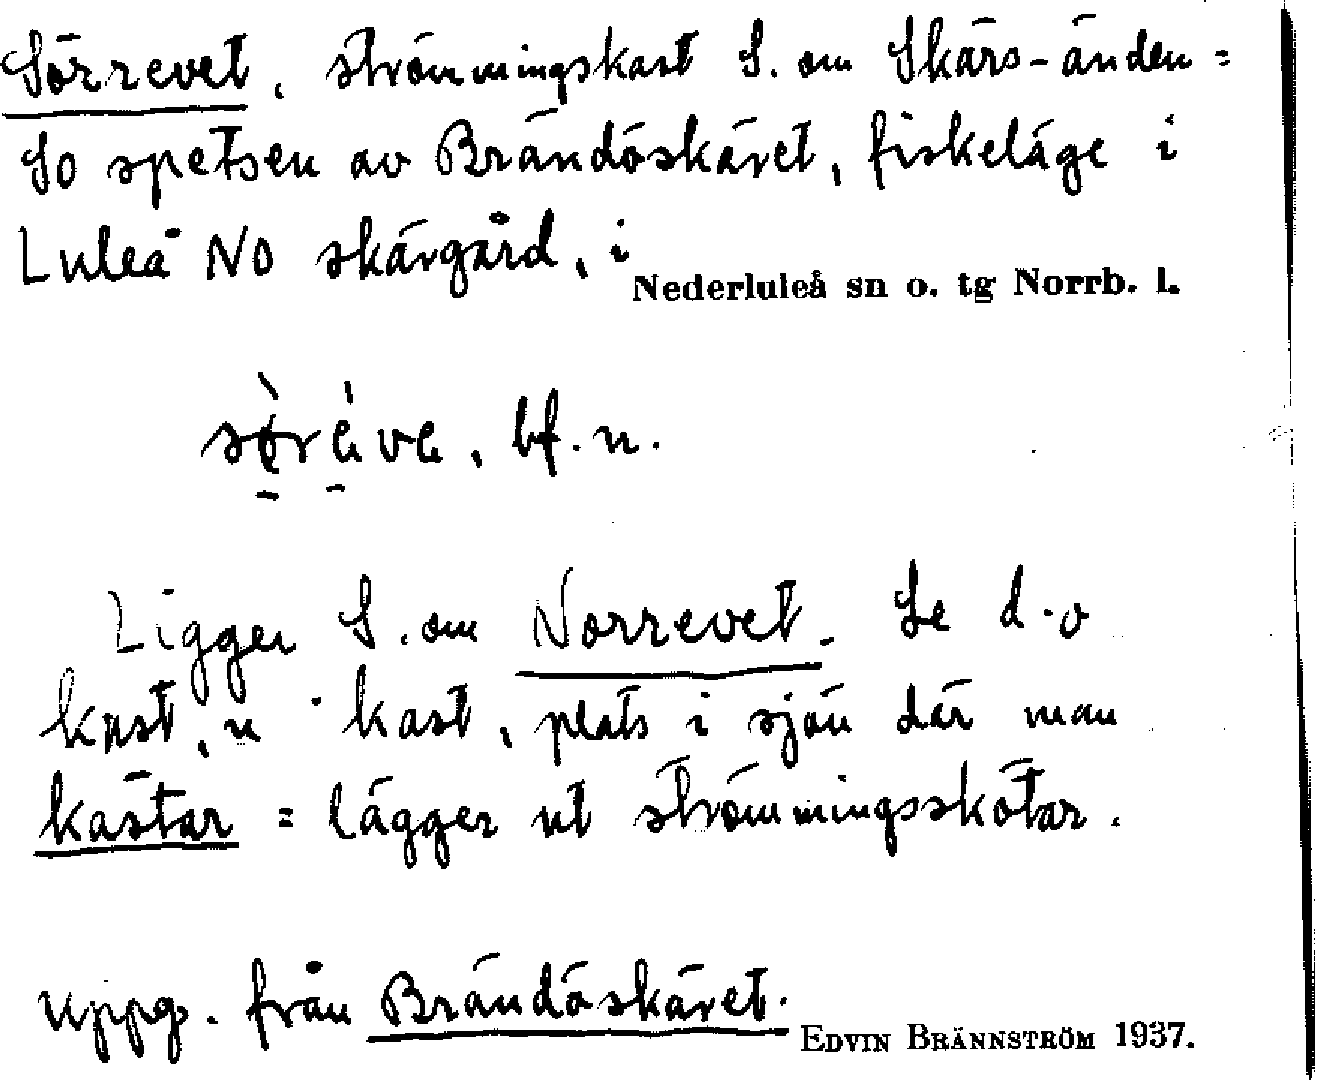 Sörrevet, strömmingskast S. om Skärs-änden =
So spetsen av Brändöskäret, fiskeläge i
Luleå No skärgård, i Nederluleå sn o. tg Norrb. l.
bf. n.
Ligger S. om Norrevet. Se d.o
kast, n kast, plats i sjön där man
kastar = lägger ut strömmingsskötar.
Uppg. från Brändöskäret. EDVIN BRÄNNSTRÖM 1937.